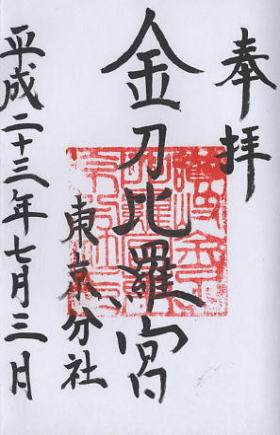 奉拝
金刀比羅宮
東京分社
平成二十三年七月三日